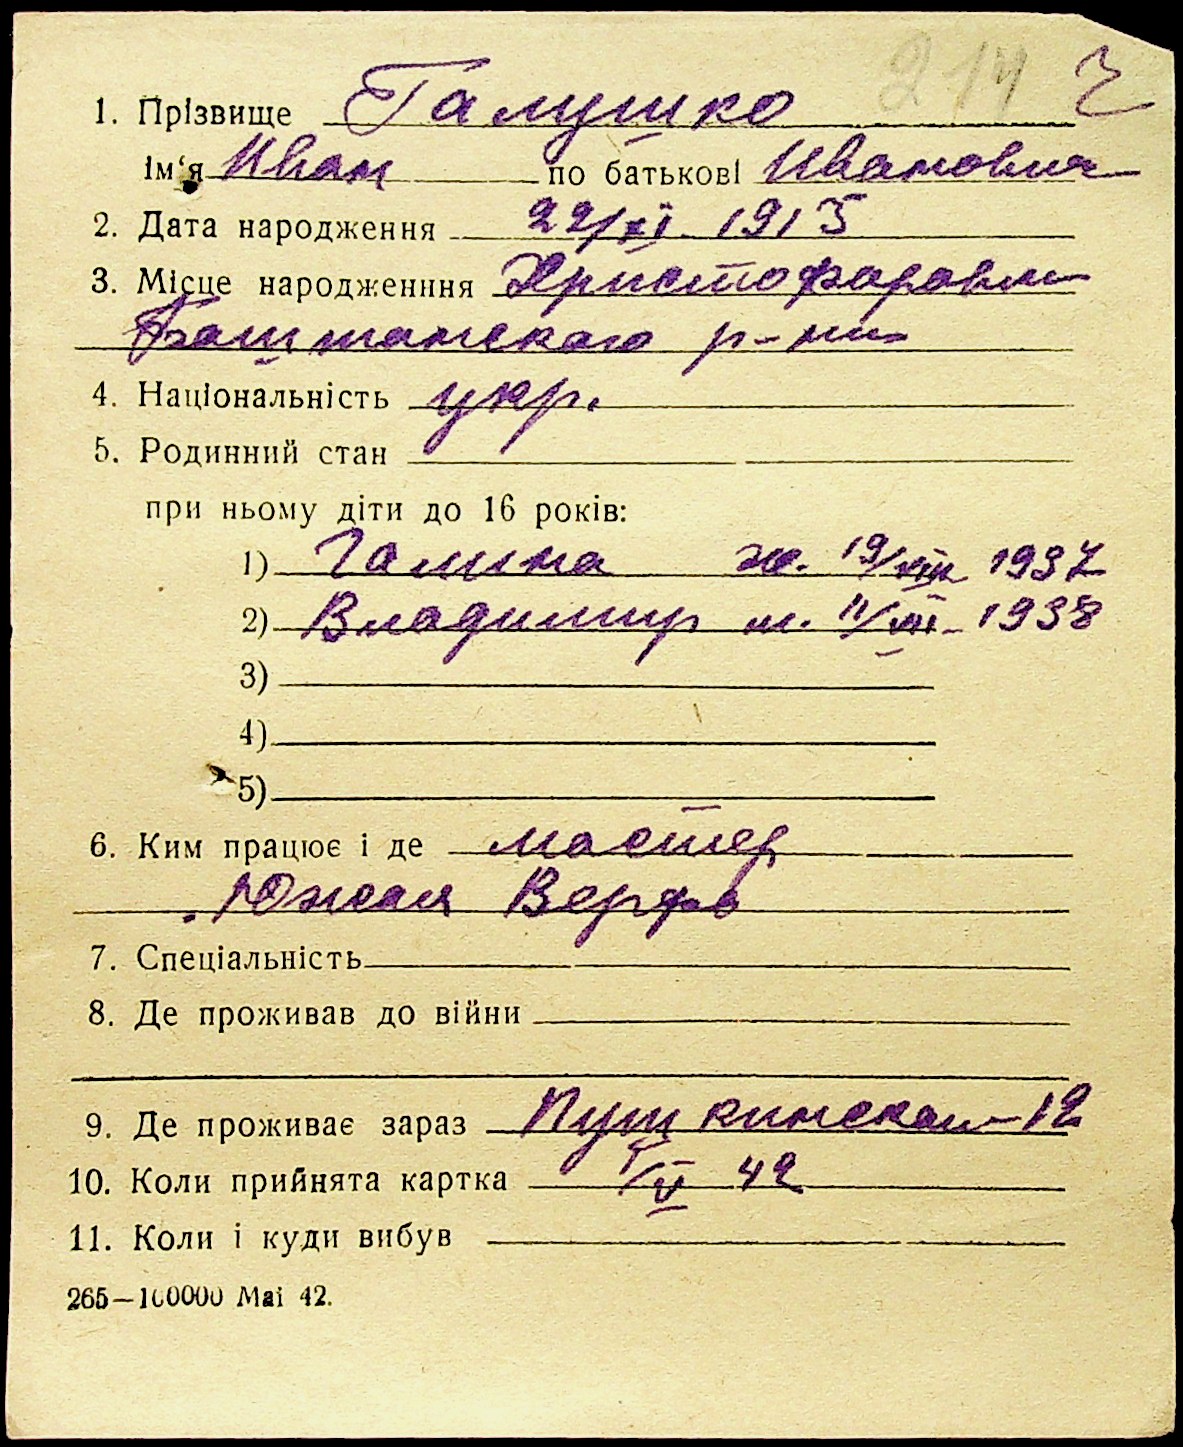 214 г
1. Прізвище Галушко
Ім‘я Иван по батькові Иванович
2. Дата народження 22/XI 1915
3. Місце народженння Христофоровка
Баштанского р-на
4. Національність укр.
5. Родинний стан
при ньому діти до 16 років:
1) Галина ж. 19/VIII 1937
2) Владимир м. 11/VII 1938
3)
4)
5)
6. Ким працює і де мастер
Южная Верфь
7. Спеціальність
8. Де проживав до війни
9. Де проживає зараз Пушкинская 12
10. Коли прийнята картка /V 42
11. Коли і куди вибув
265—100000 Mai 42.